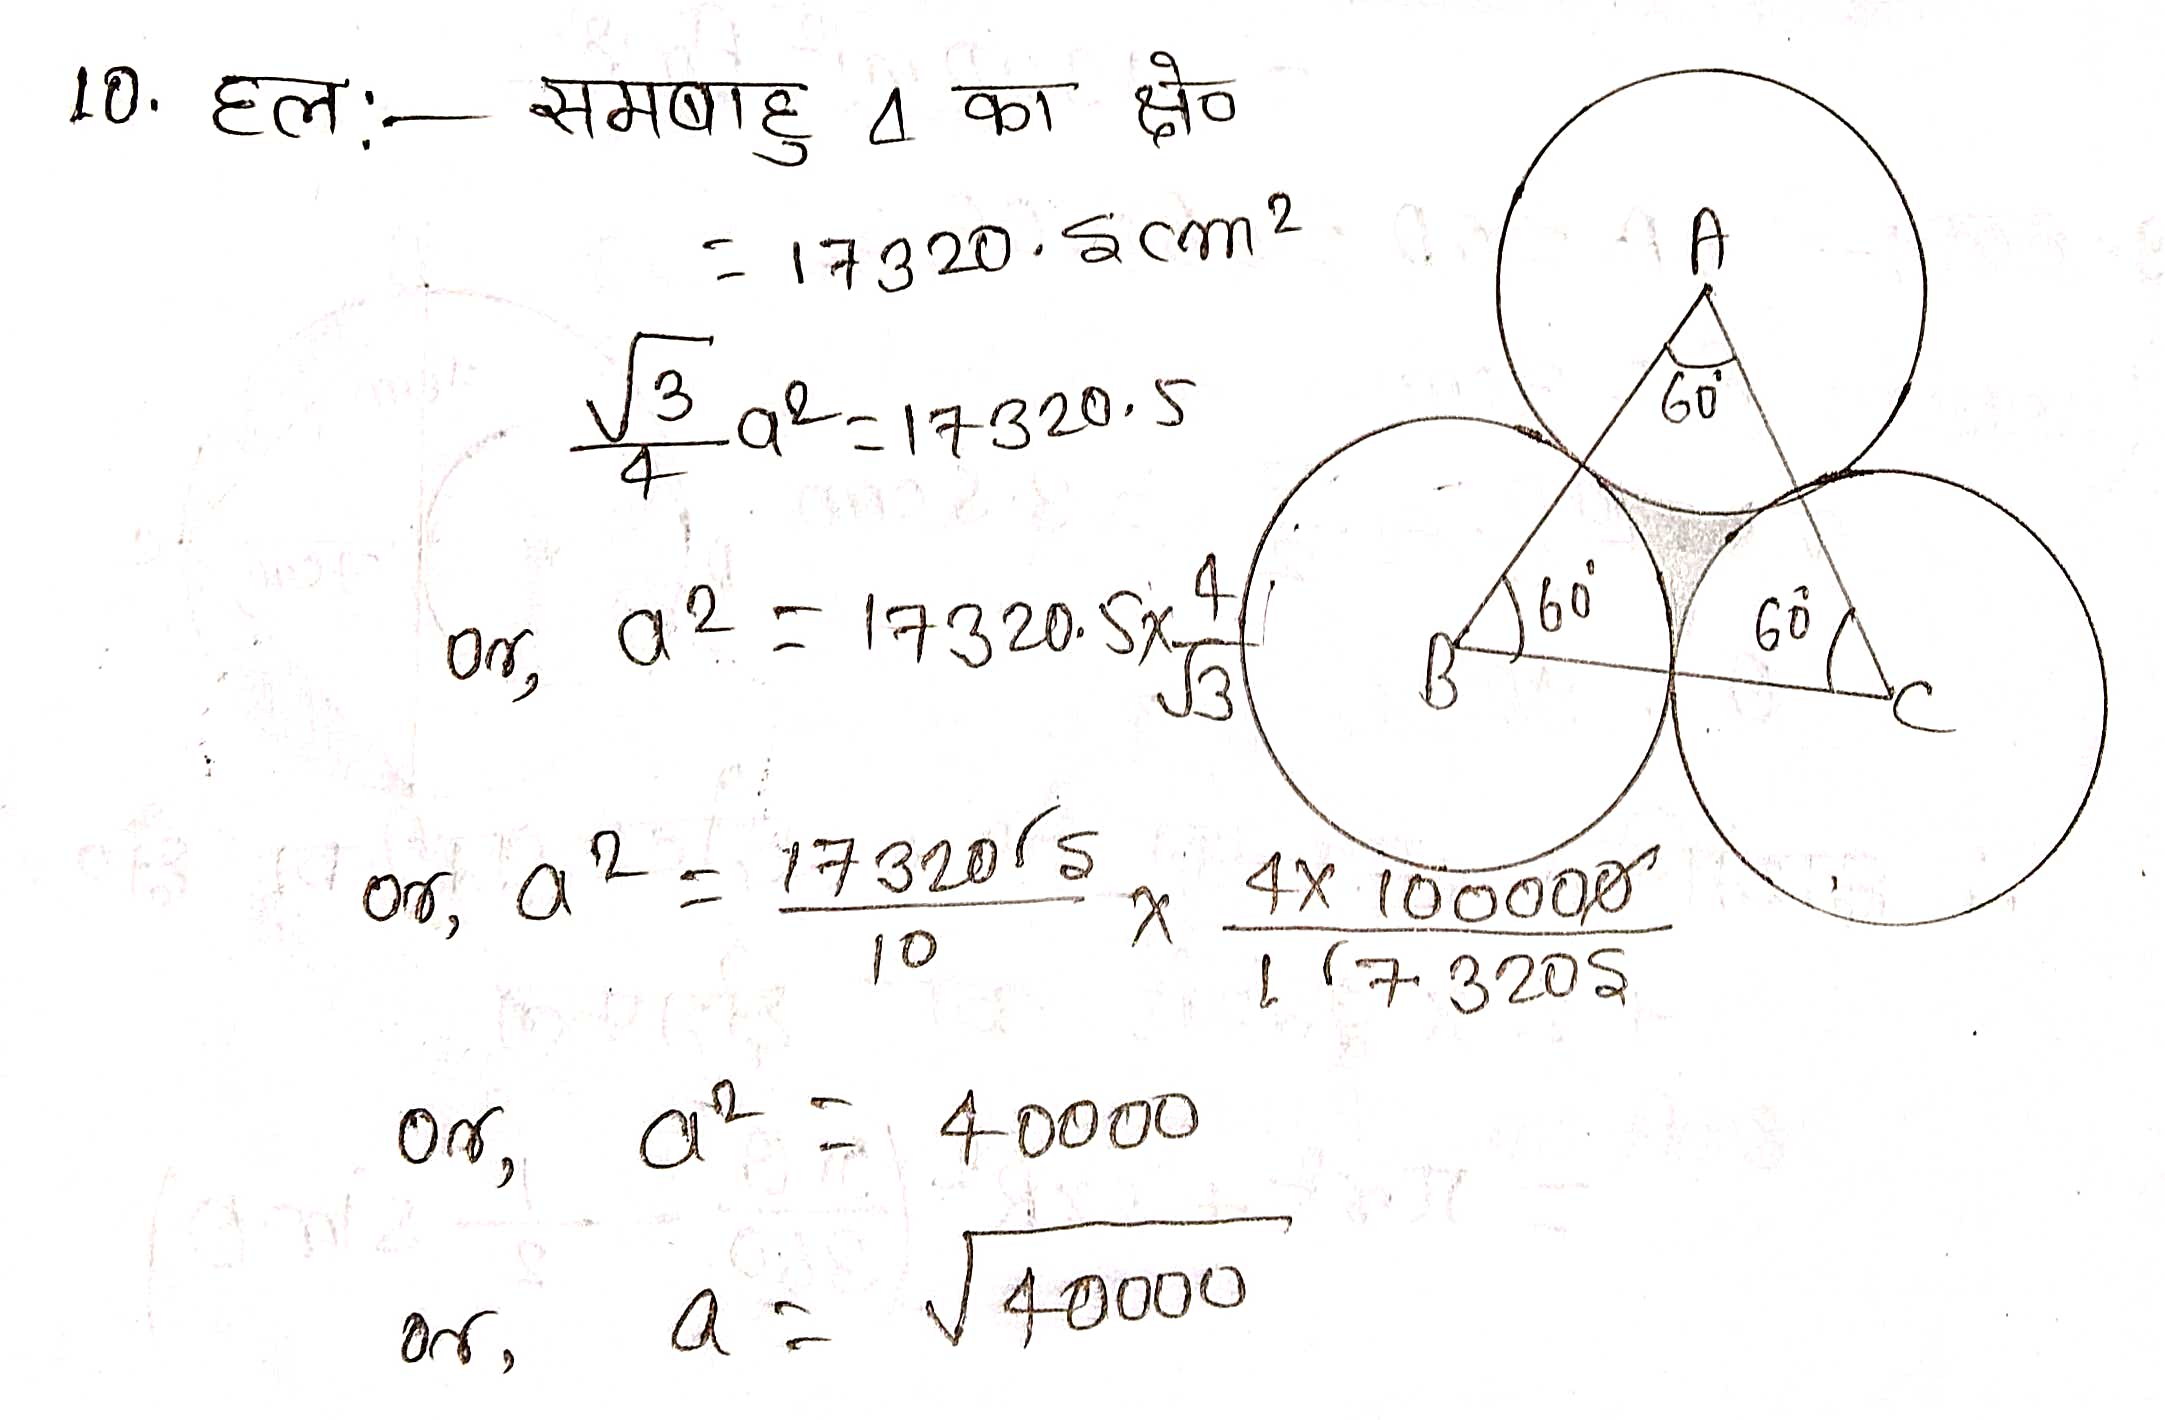 10. हल:— समबाहु Δ का क्षे०
= 17320.5cm²
√3/4 a² = 17320.5
or, a² = 17320.5 x 4/√3
or, a² = 173205/10 x 4x100000/173205
or, a² = 40000
or, a = √40000
A
60°
B
60°
60°
C